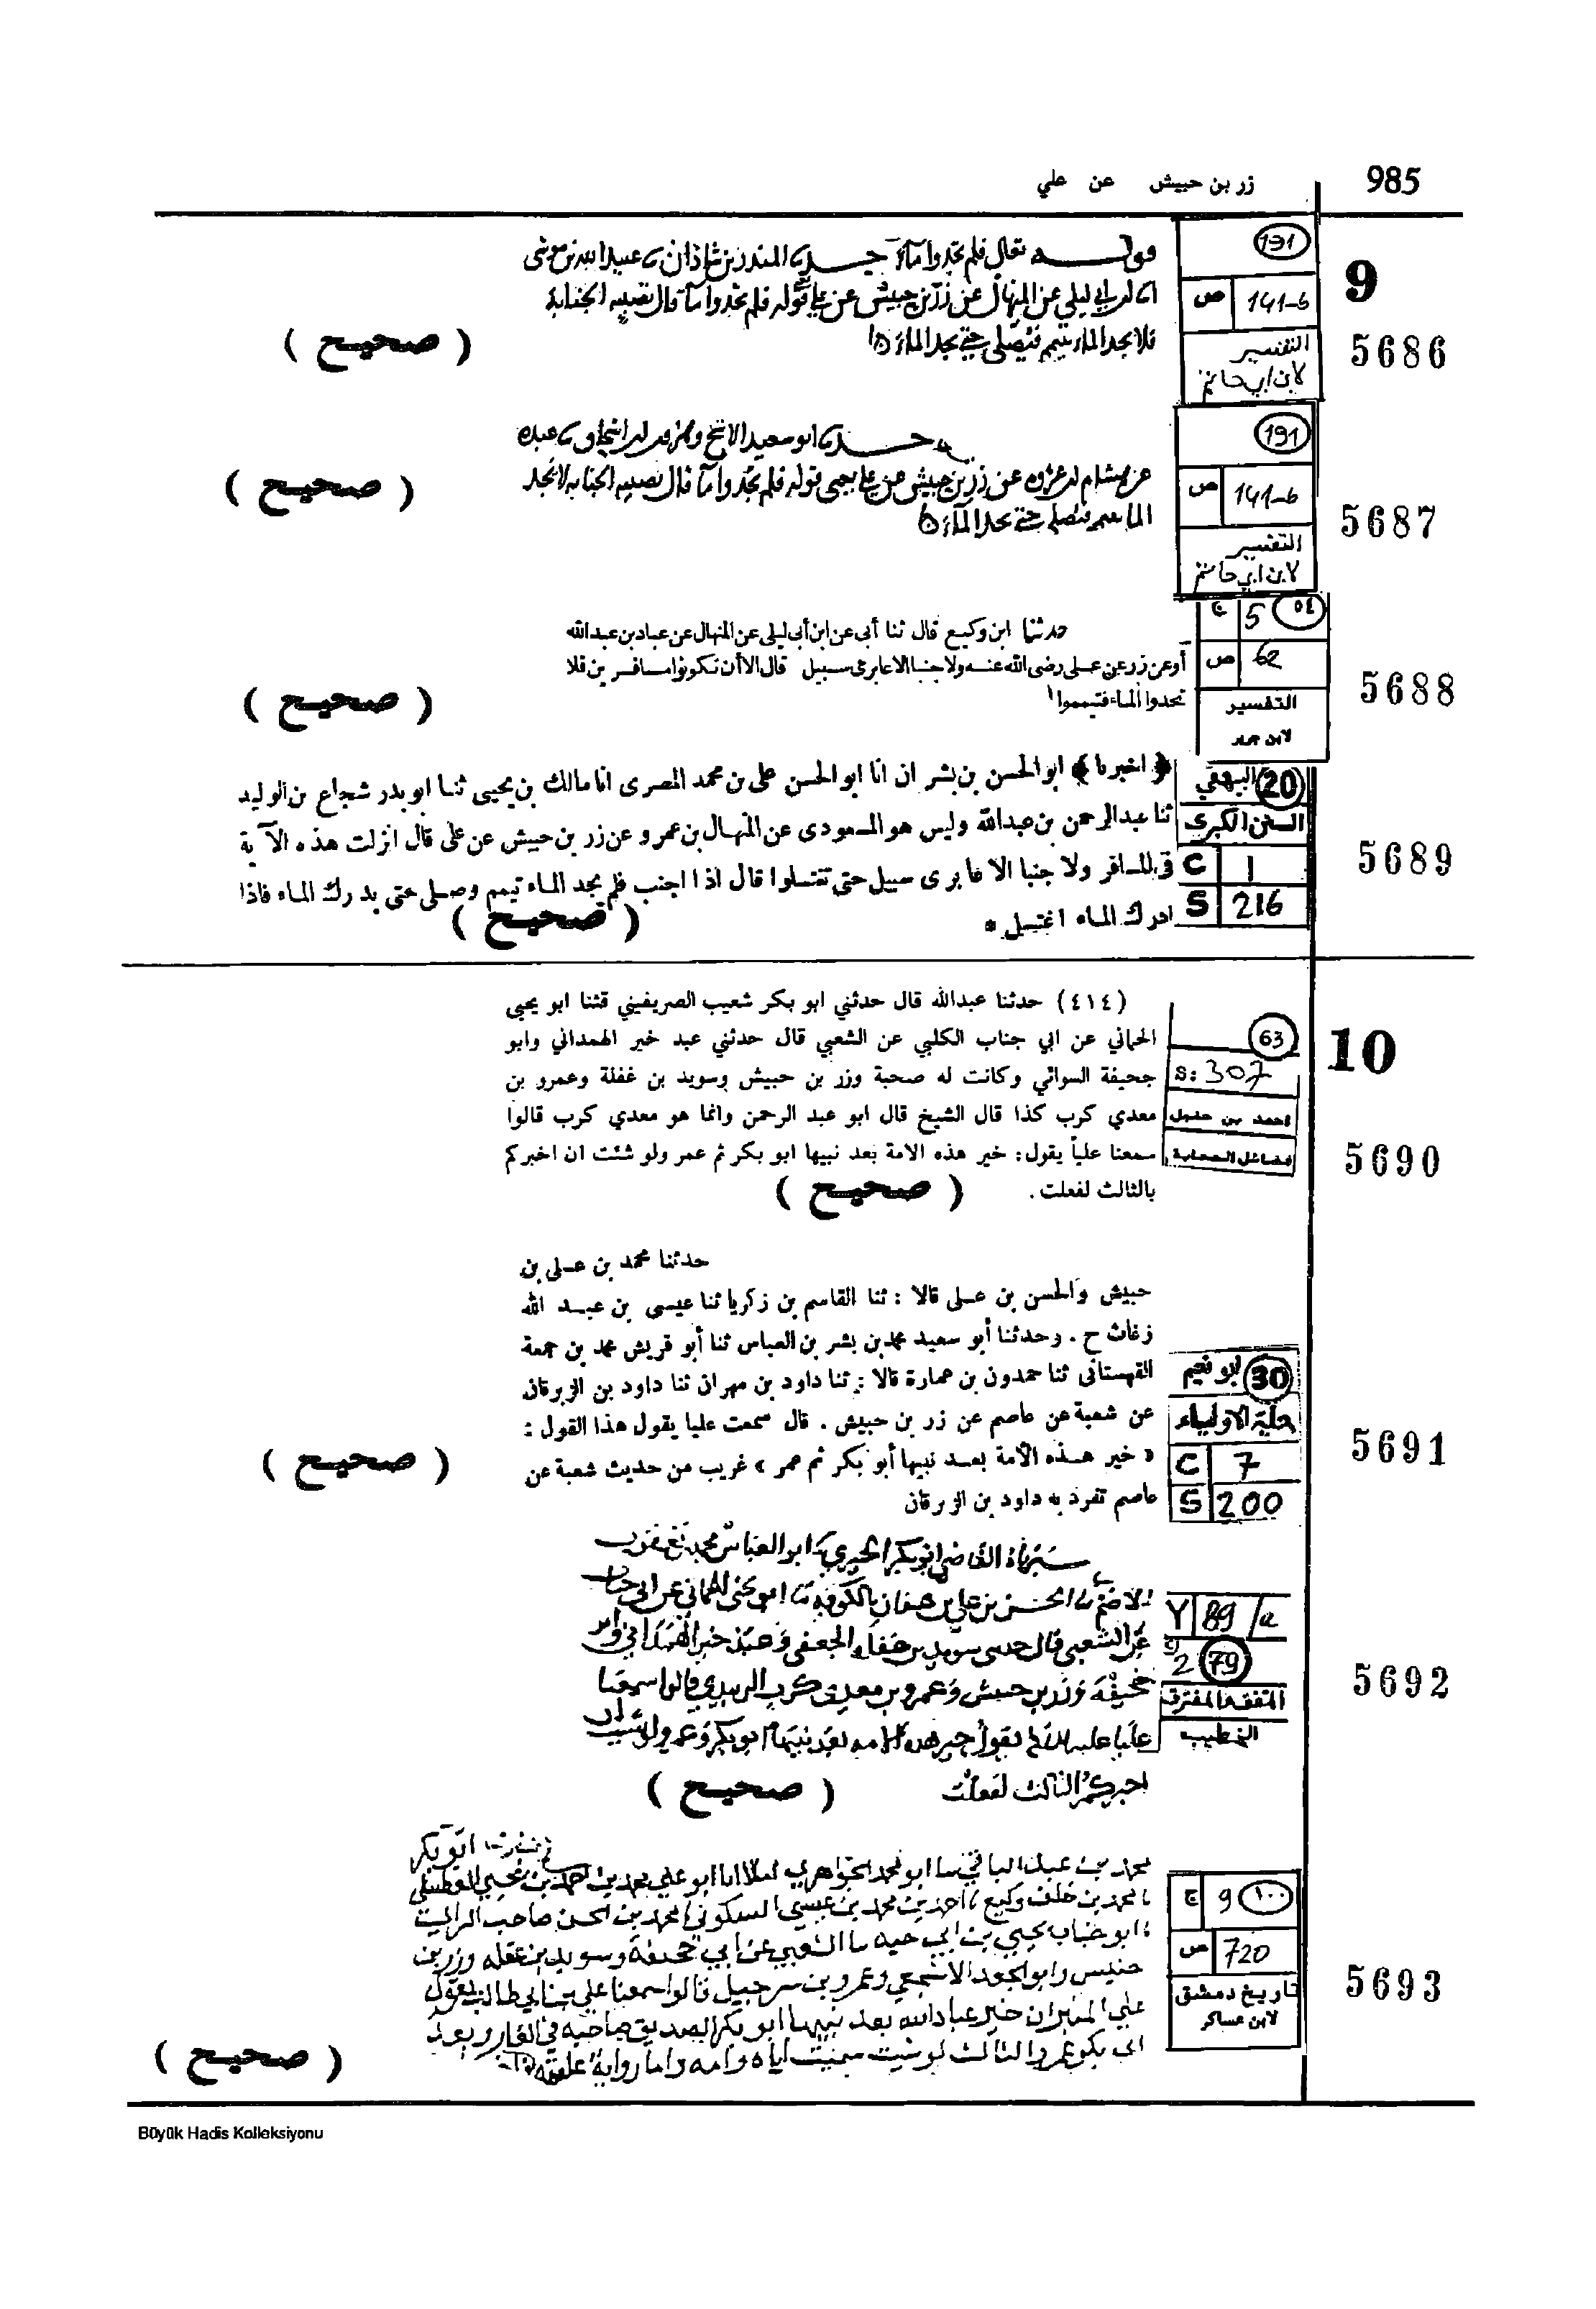 985
زر بن حبيش عن علي
9
191
ص 141-b
التفسير
لابن ابي حاتم
5686
قوله تعالى فلم تجدوا ماء حدثنا المنذر بن شاذان ثنا عبيد الله بن موسى
ابن ابي ليلى عن المنهال عن زر بن حبيش عن علي قوله فلم تجدوا ماء قال تصيبه الجنابة
فلا يجد الماء يتيمم فيصلي حتى يجد الماء
( صحيح )
191
ص 141-b
التفسير
لابن ابي حاتم
5687
حدثنا ابو سعيد الاشج
عن هشام عن زر بن حبيش عن علي يعني قوله فلم تجدوا ماء قال تصيبه الجنابه لا يجد
الما فيصلي حتى يجد الماء
( صحيح )
ج 5 ٥٤
ص 62
التفسير
لابن جرير
5688
حدثنا ابن وكيع قال ثنا أبي عن ابن أبي ليلى عن المنهال عن عباد بن عبد الله
أو عن زر عن علي رضى الله عنه ولا جنبا الا عابرى سبيل قال الا أن تكونوا مسافرين فلا
تجدوا الماء فتيمموا
( صحيح )
20 البيهقي
السنن الكبرى
C 1
S 216
5689
﴿ اخبرنا ﴾ ابو الحسن بن بشر ان انا ابو الحسن على بن محمد المصرى انا مالك بن يحيى ثنا ابو بدر شجاع بن الوليد
ثنا عبد الرحمن بن عبدالله وليس هو المسعودى عن المنهال بن عمرو عن زر بن حبيش عن على قال انزلت هذه الآية
فى المسافر ولا جنبا الا عابرى سبيل حتى تغتسلوا قال اذا اجنب فلم يجد الماء تيمم وصلى حتى يدرك الماء فاذا
ادرك الماء اغتسل *
( صحيح )
10
63
S: 307
احمد بن حنبل
فضائل الصحابة
5690
(٤١٤) حدثنا عبدالله قال حدثني ابو بكر شعيب الصريفيني قثنا ابو يحيى
الحماني عن ابي جناب الكلبي عن الشعبي قال حدثني عبد خير الهمداني وابو
جحيفة السوائي وكانت له صحبة وزر بن حبيش وسويد بن غفلة وعمرو بن
معدي كرب كذا قال الشيخ قال ابو عبد الرحمن وانما هو معدي كرب قالوا
سمعنا علياً يقول: خير هذه الامة بعد نبيها ابو بكر ثم عمر ولو شئت ان اخبركم
بالثالث لفعلت .
( صحيح )
30 ابو نعيم
حلية الاولياء
C 7
S 200
5691
حدثنا محمد بن عـلى بن
حبيش والحسن بن عـلى قالا : ثنا القاسم بن زكريا ثنا عيسى بن عبـد الله
زغاث ح . وحدثنا أبو سعيد محمد بن بشر بن العباس ثنا أبو قريش محمد بن جمعة
القهستانى ثنا حمدون بن عمارة قالا : ثنا داود بن مهران ثنا داود بن الزبرقان
عن شعبة عن عاصم عن زر بن حبيش . قال سمعت عليا يقول هذا القول :
« خير هـذه الأمة بعـد نبيها أبو بكر ثم عمر » غريب من حديث شعبة عن
عاصم تفرد به داود بن الزبرقان
( صحيح )
Y 89/a
2 79
المتفق والمفترق
الخطيب
5692
القاضي ابو بكر الحيري ابو العباس محمد بن يعقوب
الاصم ثنا الحسن بن علي بن عفان بالكوفه ثنا ابو يحيى الحماني عن ابي جناب
عن الشعبي قال حدثني سويد بن غفله الجعفي وعبد خير الهمداني وابو
جحيفة وزر بن حبيش وعمرو بن معدي كرب الزبيدي قالوا سمعنا
عليا عليه السلام يقول خير هذه الامه بعد نبيها ابو بكر وعمر ولو شئت ان
اخبركم الثالث لفعلت
( صحيح )
ج 9 ١٠٠
ص 720
تاريخ دمشق
لابن عساكر
5693
ابو بكر
محمد بن عبد الباقي ابو محمد الجوهري املا انا ابو علي محمد بن احمد بن يحيى
محمد بن خلف وكيع احمد بن محمد بن عيسى السكوني محمد بن الحسن صاحب
ابو جناب يحيى بن ابي حيه الشعبي عن ابي جحيفة وسويد بن غفله وزر بن
حبيش وابو الجعد الاشجعي وعمرو بن سرحبيل قالوا سمعنا علي بن ابي طالب يقول
علي المنبر ان خير عباد الله بعد نبيها ابو بكر الصديق صاحبه في الغار وبعد
ابي بكر عمر والثالث لو شيت سميت اياه
( صحيح )
Büyük Hadis Kolleksiyonu